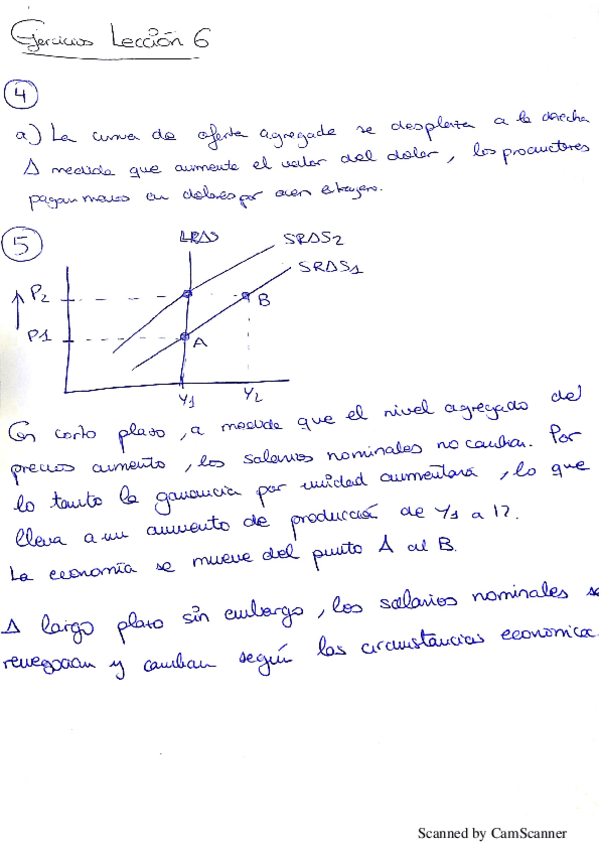 Ejercicios Lección 6
4
a) La curva de oferta agregada se desplaza a la derecha
A medida que aumente el valor del dolar, los productores
pagan menos en dolares por
5
LRAS
SRAS2
SRAS1
P2
B
P1
A
Y1
Y2
En corto plazo, a medida que el nivel agregado de
precios aumento, los salarios nominales no cambian. Por
lo tanto la ganancia por unidad aumentara, lo que
lleva a un aumento de producción de Y1 a
La economía se mueve del punto A al B.
A largo plazo sin embargo, los salarios nominales s
renegocian y cambian según las circunstancias económica
Scanned by CamScanner